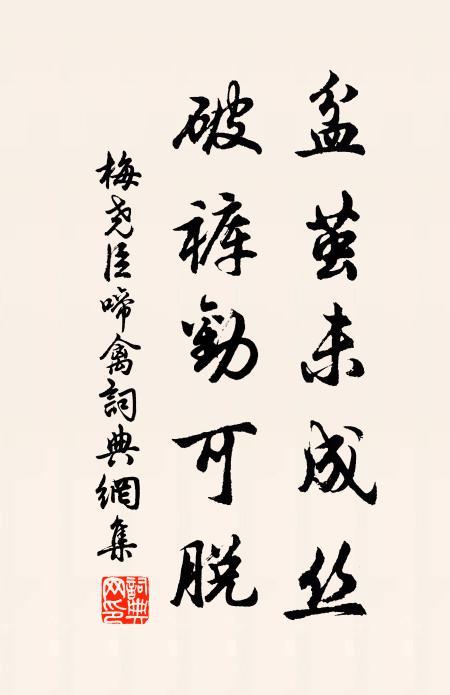 盆茧未成丝
破裤劝可脱
梅尧臣啼禽詞典網集
詞典网印